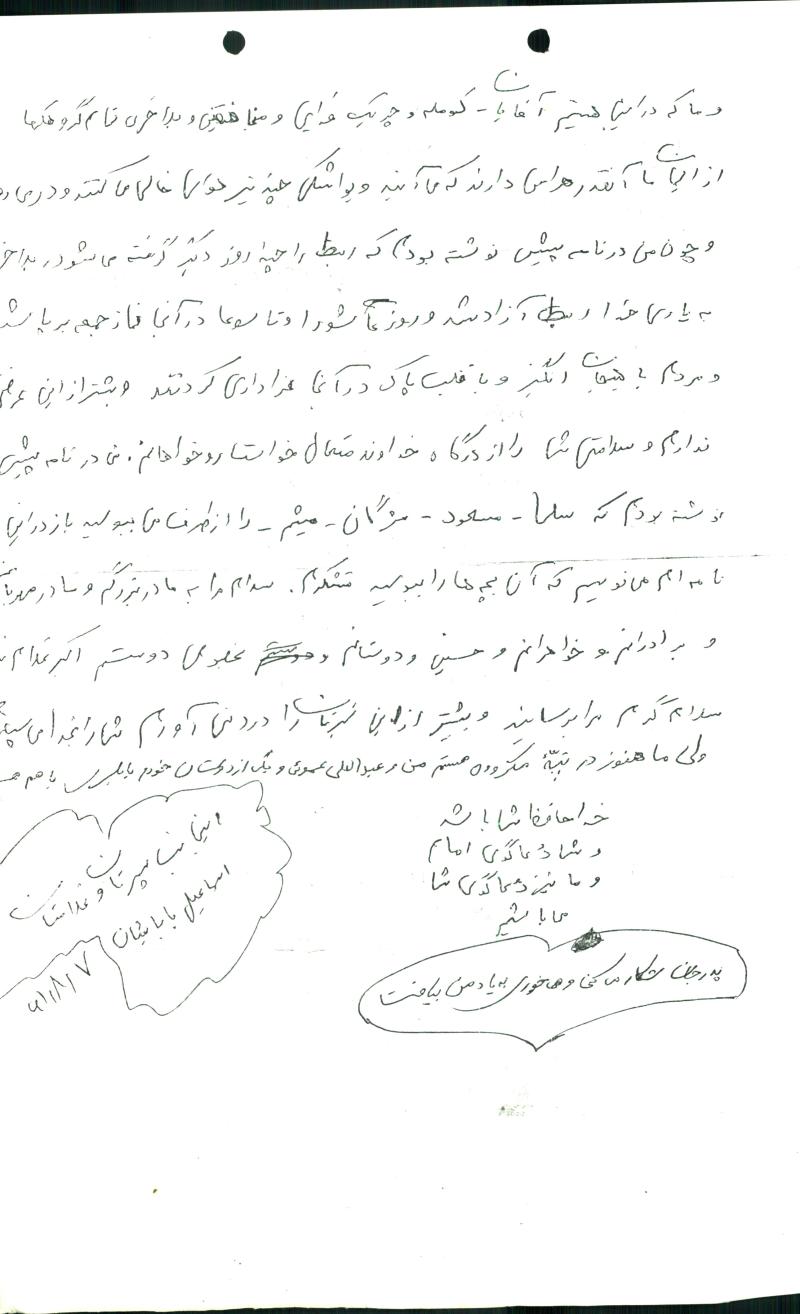 و ما که در اینجا هستیم آقایان - کومله و چریک فدایی و منافقین و بالاخره تمام گروهکها
از ایشان ما آنقدر هراس دارند که می آیند و یواشکی چند تیر هوایی خالی می کنند و در می
و چون من در نامه پیش نوشته بودم که ربط را چند روز دیگر گرفته می شود
به یاری خدا ربط آزاد شد و روز عاشورا و تاسوعا در آنجا نماز جمعه بر پا
و مردم با هیجان انگیز و با قلب پاک در آنجا عزاداری کردند و بیشتر از این
ندارم و سلامتی شما را از درگاه خداوند متعال خواستارو خواهانم. من در نامه پیش
نوشته بودم که سلما - مسعود - مژگان - میثم - را از طرف من ببوسید باز در این
نامه ام می نویسم که آن بچه ها را ببوسید متشکرم. سلام مرا به مادربزرگم و مادر
و برادرانم و خواهرانم و حسین و دوستانم و بخصوص دوستم اکبر
سلام گرم مرا برسانید و بیشتر از این سرتان را درد نمی آورم شما را بخدا می
ولی ما هنوز در تپهٔ مکروده هستم من و عبدالعلی عموئی و یکی از دوستان خودم بابلسری با هم
خدا حافظ شما باشد
و شما دعاگوی امام
و ما نیز دعاگوی شما
می باشیم
پدر جان شکار می کنی و می خوری به یاد من بیافت
اسماعیل بابائیان
۶۱/۸/۱۷